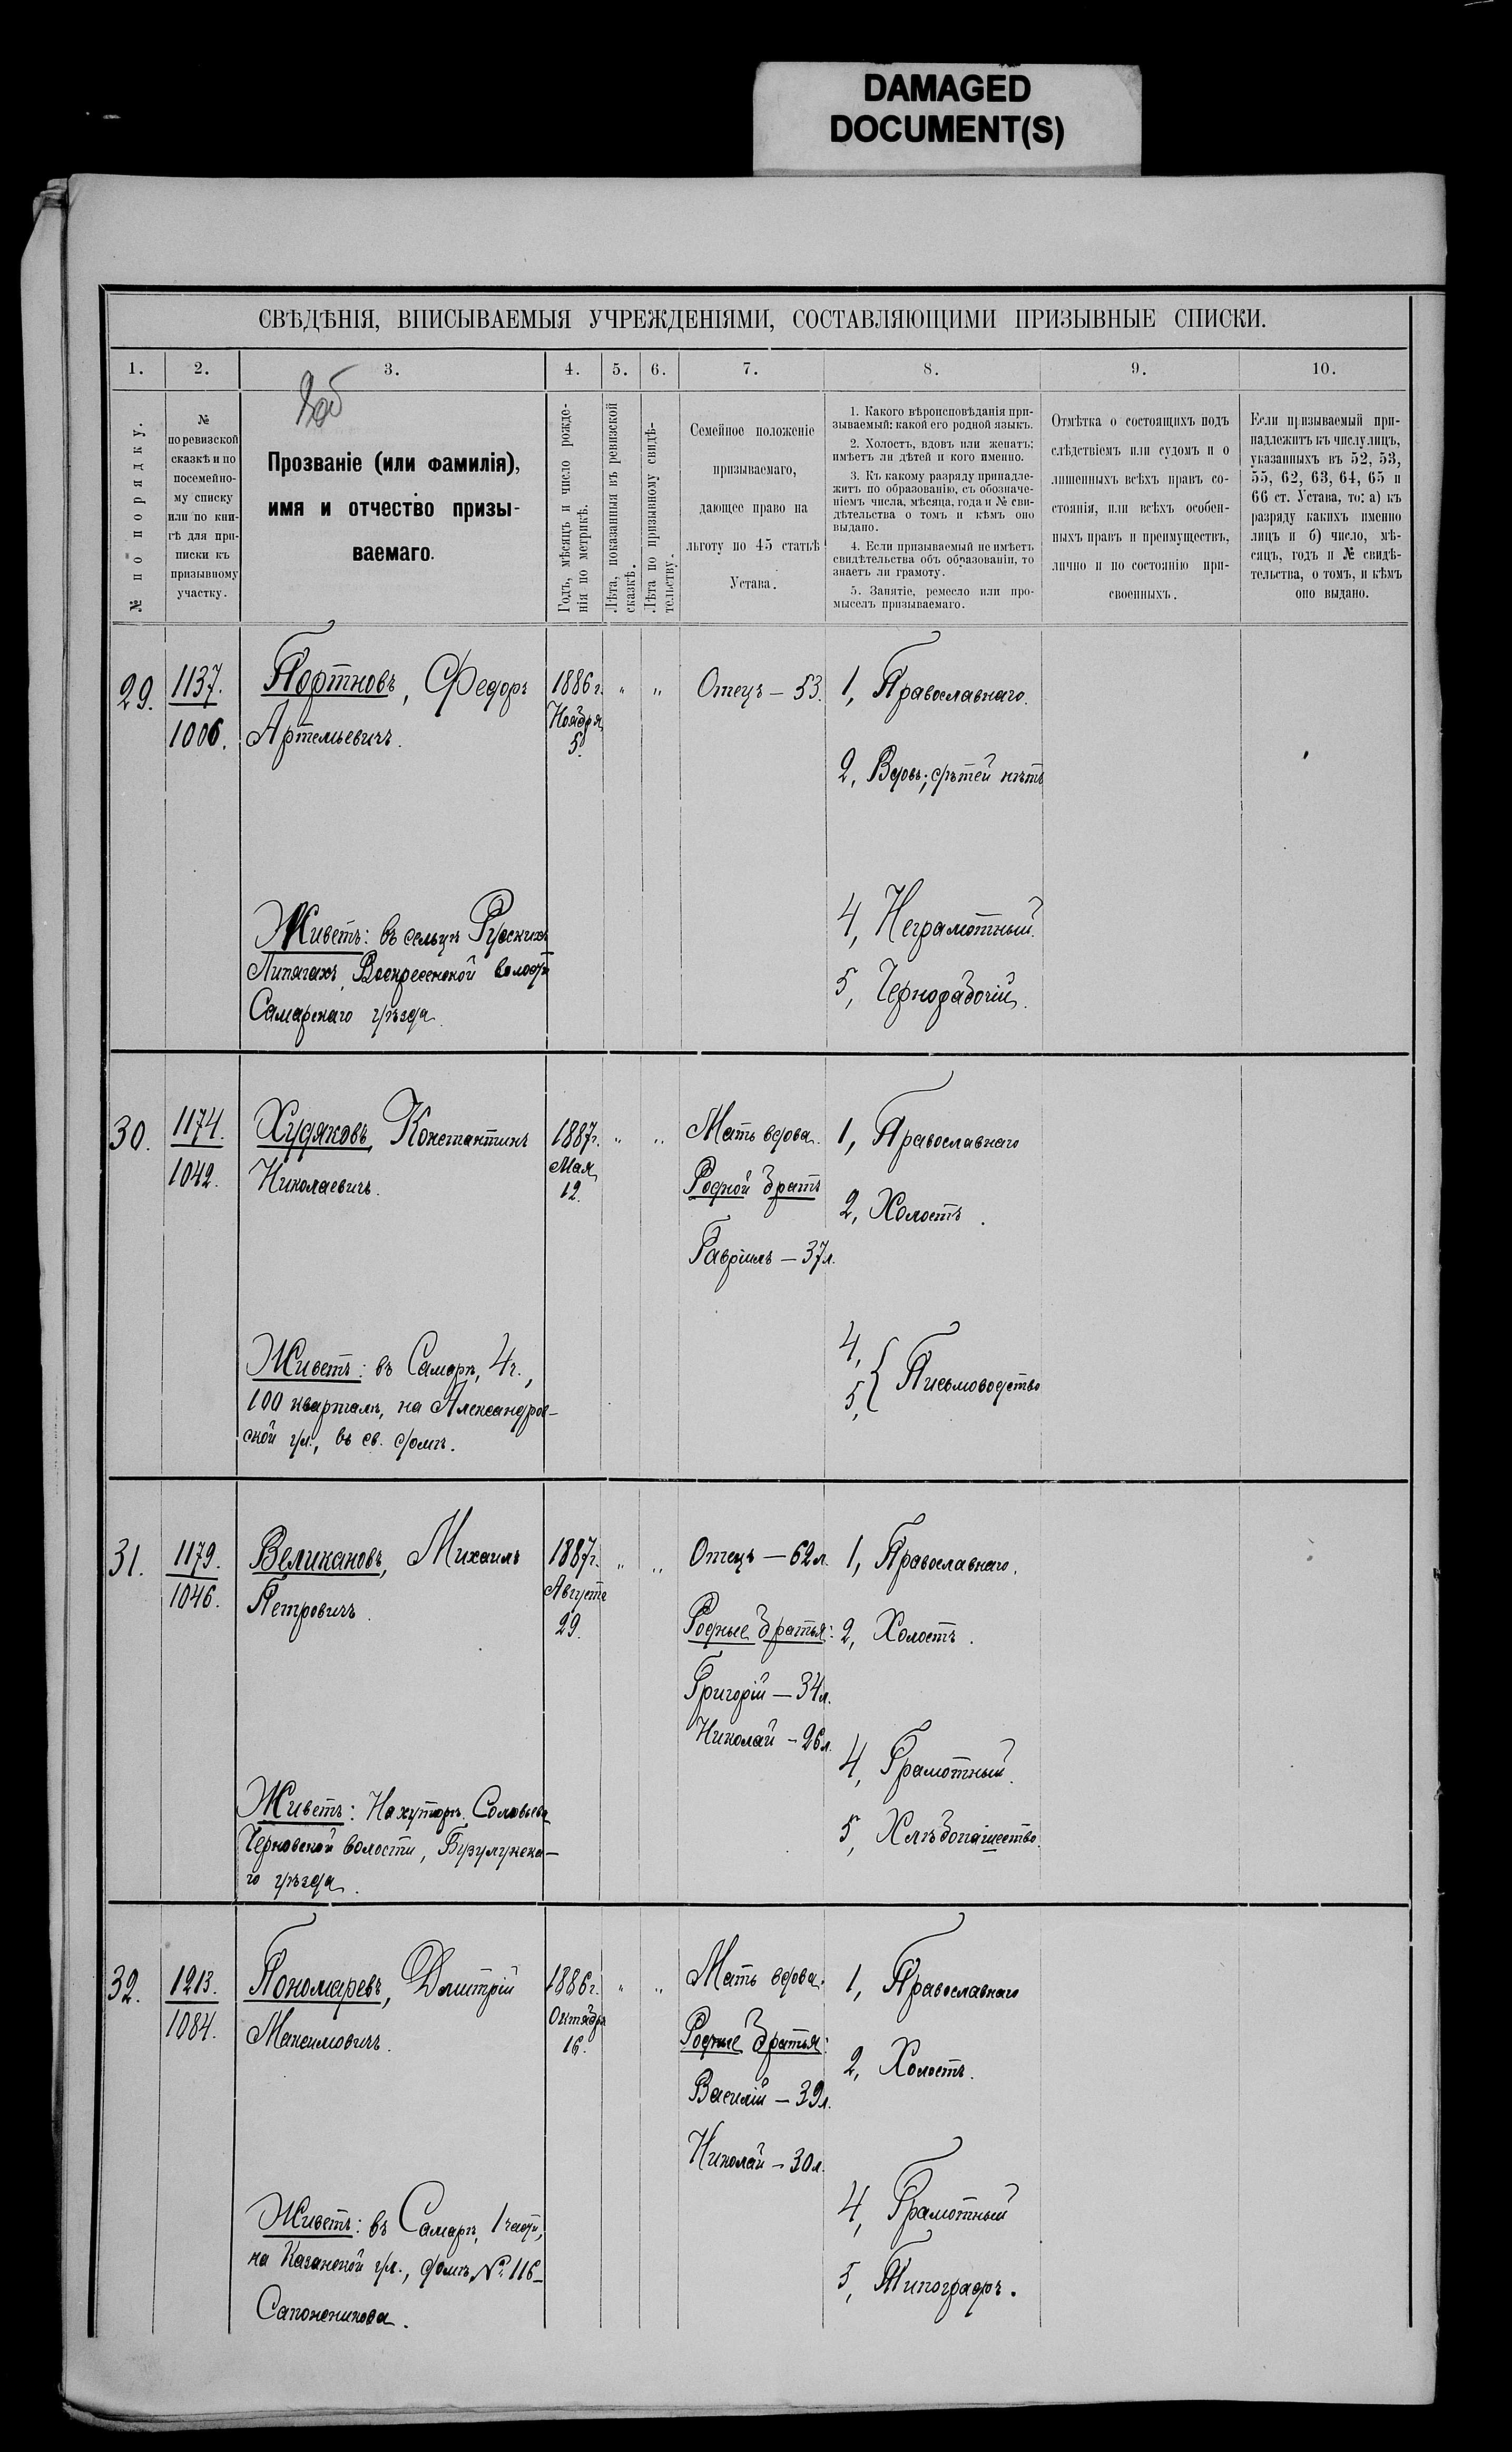 DAMAGED
DOCUMENT(S)
СВѢДѢНІЯ, ВПИСЫВАЕМЫЯ УЧРЕЖДЕНІЯМИ, СОСТАВЛЯЮЩИМИ ПРИЗЫВНЫЕ СПИСКИ.
1.
2.
3.
4.
5.
6.
7.
8.
9.
10.
№ по порядку.
№
по ревизской
сказкѣ и по
посемейно-
му списку
или по кни-
гѣ для при-
писки къ
призывному
участку.
Прозваніе (или фамилія),
имя и отчество призы-
ваемаго.
Годъ, мѣсяцъ и число рожде-
нія по метрикѣ.
Лѣта, показанныя въ ревизской
сказкѣ.
Лѣта по призывному свидѣ-
тельству.
Семейное положеніе
призываемаго,
дающее право на
льготу по 45 статьѣ
Устава.
1. Какого вѣроисповѣданія при-
зываемый: какой его родной языкъ.
2. Холостъ, вдовъ или женатъ:
имѣетъ ли дѣтей и кого именно.
3. Къ какому разряду принадле-
житъ по образованію, съ обозначе-
ніемъ числа, мѣсяца, года и № сви-
дѣтельства о томъ и кѣмъ оно
выдано.
4. Если призываемый не имѣетъ
свидѣтельства объ образованіи, то
знаетъ ли грамоту.
5. Занятіе, ремесло или про-
мыселъ призываемаго.
Отмѣтка о состоящихъ подъ
слѣдствіемъ или судомъ и о
лишенныхъ всѣхъ правъ со-
стоянія, или всѣхъ особен-
ныхъ правъ и преимуществъ,
лично и по состоянію при-
своенныхъ.
Если призываемый при-
надлежитъ къ числу лицъ,
указанныхъ въ 52, 53,
55, 62, 63, 64, 65 и
66 ст. Устава, то: а) къ
разряду какихъ именно
лицъ и б) число, мѣ-
сяцъ, годъ и № свидѣ-
тельства, о томъ, и кѣмъ
оно выдано.
29.
1137.
1006.
Портновъ, Федоръ
Артемьевичъ.
Живетъ: въ сельцѣ Русскихъ
Липягахъ, Воскресенской волости
Самарскаго уѣзда.
1886 г.
Ноября
5.
" "
Отецъ – 53.
1, Православнаго.
2, Вдовъ; дѣтей нѣтъ
4, Неграмотный.
5, Чернорабочій.
30.
1174.
1042.
Худяковъ, Константинъ
Николаевичъ.
Живетъ: въ Самарѣ, 4 ч.,
100 кварталѣ, на Александров-
ской ул., въ св. домѣ.
1887 г.
Мая
12.
" "
Мать вдова.
Родной братъ
Гавріилъ – 37 л.
1, Православнаго
2, Холостъ.
4,
5, { Письмоводство
31.
1179.
1046.
Великановъ, Михаилъ
Петровичъ.
Живетъ: На хуторѣ Соловьева
Черновской волости, Бузулукска-
го уѣзда.
1887 г.
Августа
29.
" "
Отецъ – 62 л.
Родные братья:
Григорій – 34 л.
Николай – 26 л.
1, Православнаго.
2, Холостъ.
4, Грамотный.
5, Хлѣбопашество.
32.
1213.
1084.
Пономаревъ, Дмитрій
Максимовичъ.
Живетъ: въ Самарѣ, 1 части,
на Казанской ул., домъ № 116 –
Сапожникова.
1886 г.
Октября
16.
" "
Мать вдова.
Родные братья:
Василій – 39 л.
Николай – 30 л.
1, Православнаго
2, Холостъ.
4, Грамотный
5, Типографъ.